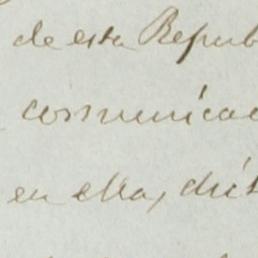 de esta Repub
comunicac
en ella, dist